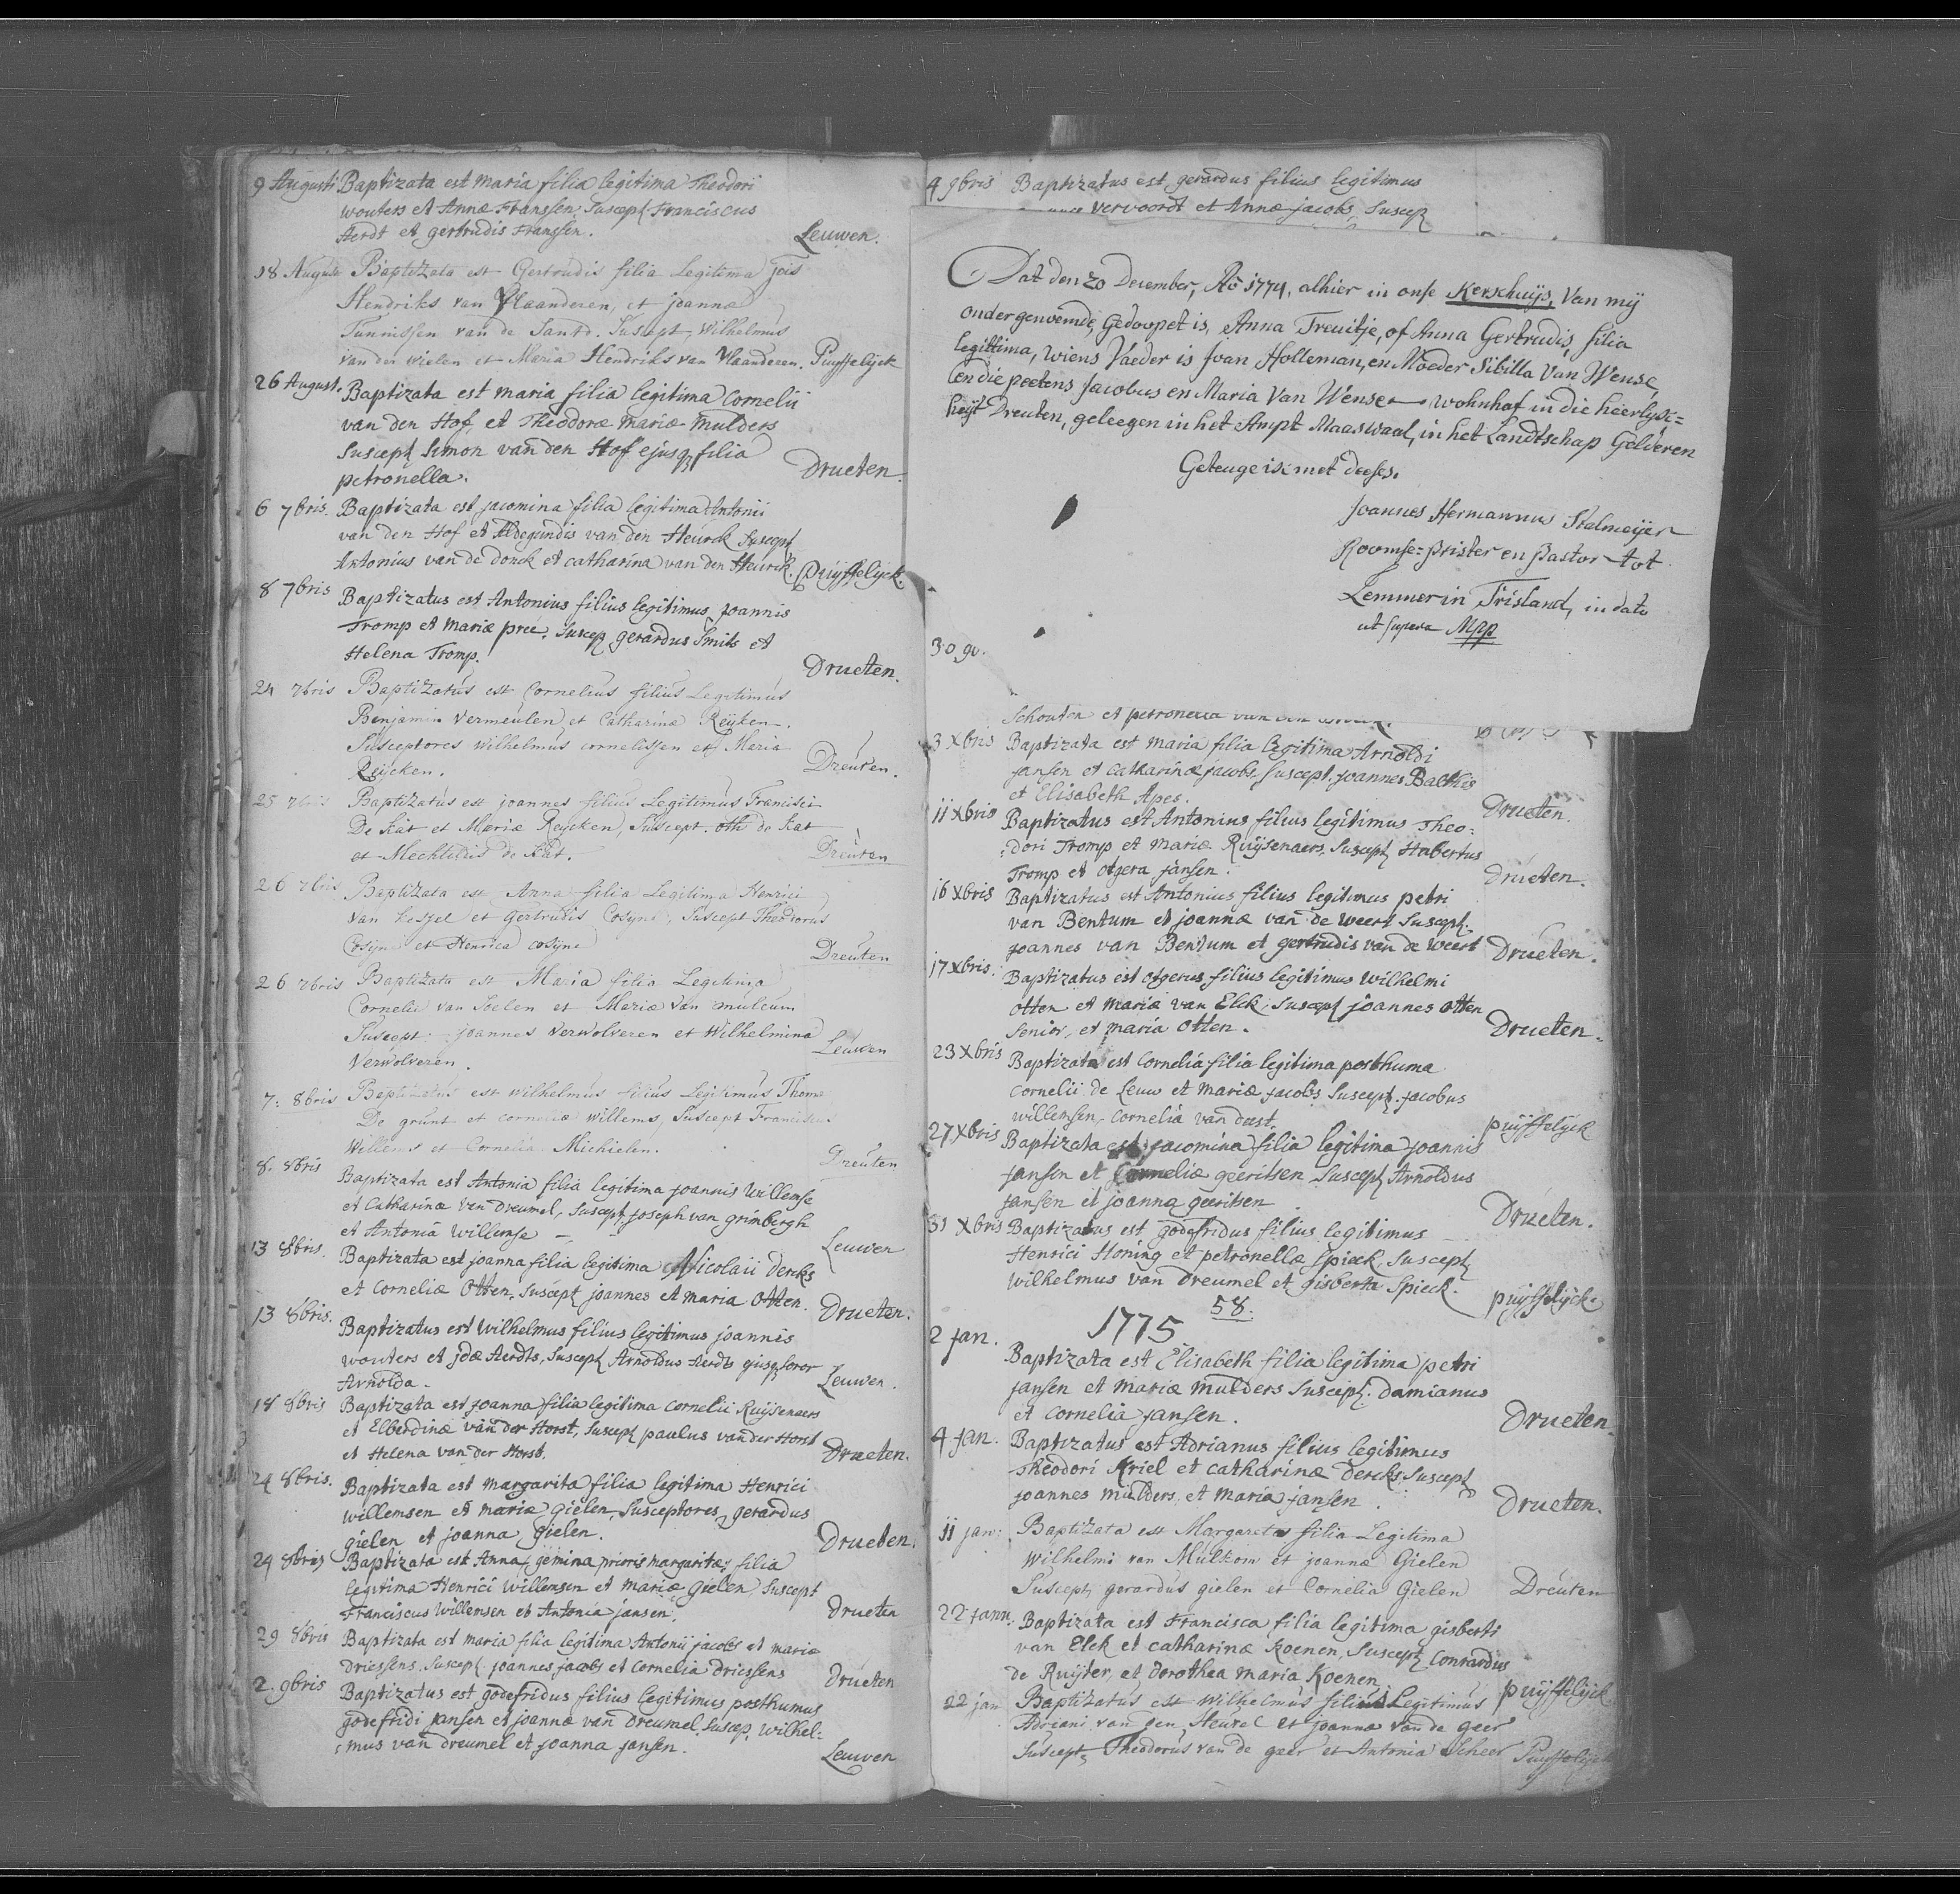 9 Augusti Baptizata est maria filia legitima Theodori
wouters et Annæ Franssen, Suscept. Franciscus
Aerdt et gertrudis Franssen. Leuwen.
18 August Baptizata est Gertrudis filia Legitima jois
Hendriks van Vlaanderen, et joannæ
Tunnissen van de Sandt. Suscept, Wilhelmus
van der wielen et Maria Hendriks van Vlaanderen. Puyffelijck
26 August. Baptizata est maria filia legitima Cornelii
van den Hof, et Theodoræ Mariæ Mulders
Suscept Simon van den Hof ejusq filia
petronella. Drueten.
6 7bris. Baptizata est jacomina filia legitima Antonii
van den Hof et Aldegundis van den Heurck Suscept
Antonius van de donck et catharina van den Heurck. Puyffelyck.
8 7bris Baptizatus est Antonius filius legitimus joannis
Tromp et mariæ preé. Suscep gerardus Smits et
Helena Tromp. Drueten.
24 7bris Baptizatus est Cornelius filius Legitimus
Benjamin Vermeulen et Catharinæ Reijken.
Susceptores wilhelmus cornelissen et Maria
Reijcken. Dreuten.
25 7bris Baptizatus est joannes filius Legitimus Francisci
De Kat et Mariæ Reycken, Suscept. oth de Kat
et Mechtildis de Kat. Dreuten
26 7bris Baptizata est Anna filia Legitima Henrici
van Kessel et Gertrudis Cosijns, Suscept Theodorus
Cosijns et Henrica cosijns Dreuten
26 7bris Baptizata est Maria filia Legitima
Cornelii van Soelen et Mariæ van muleum
Suscept. joannes Verwolveren et Wilhelmina
Verwolveren. Leuwen
7: 8bris Baptizatus est Wilhelmus filius Legitimus Thomæ
De grunt et corneliæ willems, Suscept Franciscus
Willems et Cornelia Michielen. Dreuten
8. 8bris Baptizata est Antonia filia legitima joannis Willemse
et Catharinæ van Dreumel, Suscept joseph van grimbergh
et Antonia Willemse - Leuwen
13 8bris. Baptizata est joanna filia legitima Nicolaii Dercks
et Corneliæ Otten, Suscept joannes et maria Otten. Drueten.
13 8bris. Baptizatus est Wilhelmus filius legitimus joannis
wouters et jdæ Aerdts, Suscept Arnoldus Aerdts ejusq soror
Arnolda. Leuwen.
18 8bris Baptizata est joanna filia legitima Cornelii Ruijsenaers
et Elberdinæ van der Horst, Suscept paulus vander Horst
et Helena van der Horst. Drueten.
24 8bris. Baptizata est margarita filia legitima Henrici
willemsen et mariæ gielen, Susceptores gerardus
gielen et joanna gielen. Drueten.
24 8bris Baptizata est Anna, gemina prioris margaritæ, filia
legitima Henrici Willemsen et mariæ gielen Suscept
Franciscus Willemsen et Antonia jansen. Drueten
29 8bris Baptizata est maria filia legitima Antonij jacobs et mariæ
Driessens. Suscept joannes jacobs et Cornelia Driessens Drueten
2. 9bris Baptizatus est godefridus filius legitimus posthumus
godefridi jansen et joannæ van Dreumel. Suscep, wilhel-
:mus van dreumel et joanna jansen. Leuwen
4 9bris Baptizatus est gerardus filius legitimus
vervoordt et Annæ jacobs, Suscep
Dat den 20 December, Ao 1774, alhier in onse Kerschuijs, Van mij
ondergenoemde, Gedoopet is, Anna Treuitje, of Anna Gertrudis, filia
legittima, wiens Vaeder is Joan Holleman, en Moeder Sibilla Van Wense
en die peetens Jacobus en Maria Van Wenser wohnhaf in die heerlijk=
heijt Dreuten, geleegen in het Ampt Maaswaal, in het Landtschap Gelderen
Geteuge is met deeses.
Joannes Hermannus Stelmeijer
Roomse=prister en pastor tot
Lemmer in Frisland, in dato
ut supera Mpp
30 9b.
Schouten et petronella van den
3 Xbris Baptizata est maria filia legitima Arnoldi
jansen et catharinæ jacobs, Suscept. joannes Balthis
et Elisabeth Apes. Drueten.
11 Xbris Baptizatus est Antonius filius legitimus Theo-
:dori Tromp et mariæ Ruijsenaers, Suscept Habertus
Tromp et otgera jansen. Drueten.
16 Xbris Baptizatus est Antonius filius legitimus petri
van Bentum et joannæ van de weert Suscept.
joannes van Bentum et gertrudis van de weert Drueten.
17 Xbris. Baptizatus est otgerus filius legitimus Wilhelmi
otten et mariæ van Elck. Suscept joannes otten
Senior, et maria Otten. Drueten.
23 Xbris Baptizata est Cornelia filia legitima posthuma
Cornelii de Leuw et mariæ jacobs Suscept. jacobus
willemsen, Cornelia van deest. puijffelijck
27 Xbris Baptizata est jacomina filia legitima joannis
jansen et Corneliæ geeritsen Suscept Arnoldus
jansen et joanna geeritsen Drueten.
31 Xbris Baptizatus est godefridus filius legitimus
Henrici Honing et petronellæ Spieck, Suscept
wilhelmus van Dreumel et gisberta Spieck. puijffelijck.
58.
1775
2 jan. Baptizata est Elisabeth filia legitima petri
jansen et mariæ mulders Suscept. damianus
et Cornelia jansen. Drueten.
4 jan. Baptizatus est Adrianus filius legitimus
Theodori Ariel et catharinæ dercks Suscept
joannes mulders et maria jansen. Drueten.
11 jan: Baptizata est Margareta filia Legitima
wilhelmi van Mulkom et joannæ Gielen
Suscept, gerardus gielen et Cornelia Gielen Dreuten
22 jann. Baptizata est Francisca filia legitima gisberti
van Elck et catharinæ Koenen, Suscept Conrardus
de Ruijter, et Dorothea maria Koenen puijffelijck
22 jan Baptizatus est Wilhelmus filius Legitimus
Adriani van den Heuvel et joannæ van de geer
Suscept, Theodorus van de geer et Antonia Scheer Puyffelijck